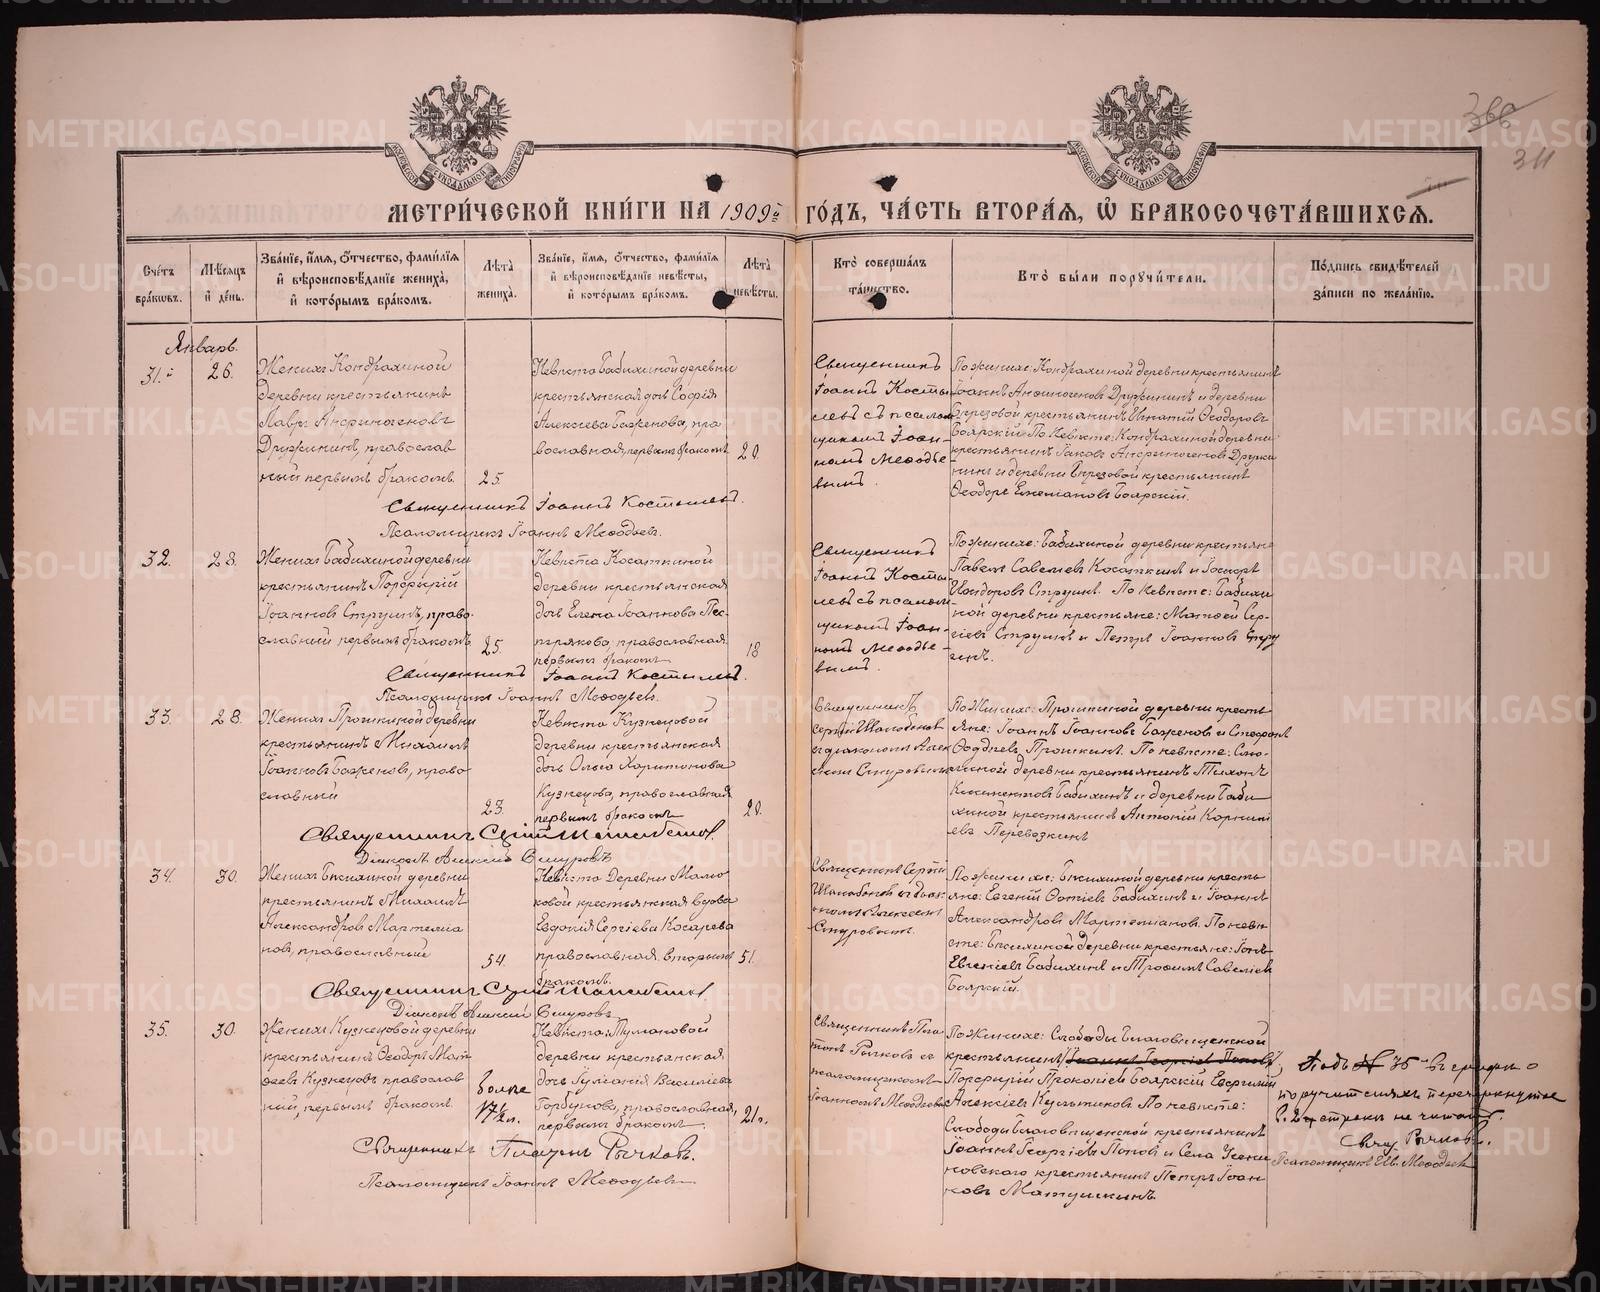 МЕТРИ́ЧЕСКОЙ КНИ́ГИ НА 1909й ГО́ДЪ, ЧА́СТЬ ВТОРА́Я, Ѡ БРАКОСОЧЕТА́ВШИХСЯ.
311
Сче́тъ бра́ковъ.
Мѣ́сяцъ и҆ де́нь.
Зва́нїе, и҆́мя, ѻ҆́тчество, фами́лїя и҆ вѣроисповѣ́данїе жениха̀, и҆ кото́рымъ бра́комъ.
Лѣ́та жениха̀.
Зва́нїе, и҆́мя, ѻ҆́тчество, фами́лїя и҆ вѣроисповѣ́данїе невѣ́сты, и҆ кото́рымъ бра́комъ.
Лѣ́та невѣ́сты.
Кто̀ соверша́лъ та́инство.
Кто̀ бы́ли порꙋчи́тели.
По́дпись свидѣ́телей за́писи по жела́нїю.
Январь.
31.й
26.
Женихъ Кондрахиной
деревни крестьянинъ
Лавръ Анфиногеновъ
Дружининъ, православ
ный первымъ бракомъ.
25.
Невѣста Бабихиной деревни
крестьянская дочь Софія
Алексѣева Баженова, пра
вославная, первымъ бракомъ
20.
Священникъ
Іоаннъ Косты
левъ съ псалом
щикомъ Іоан-
номъ Меѳодье-
вымъ.
По женихѣ: Кондрахиной деревни крестьянинъ
Іоаннъ Анфиногеновъ Дружининъ и деревни
Березовой крестьянинъ Игнатій Ѳеодоровъ
Боярскій. По невѣстѣ: Кондрахиной деревни
крестьянинъ Іаковъ Анфиногеновъ Дружи
нинъ и деревни Березовой крестьянинъ
Ѳеодоръ Боярскій.
Священникъ Іоаннъ Костылевъ.
Псаломщикъ Іоаннъ Меѳодьевъ.
32.
28.
Женихъ Бабихиной деревни
крестьянинъ Порфирій
Іоанновъ Стругинъ, право-
славный первымъ бракомъ
25.
Невѣста Косаткиной
деревни крестьянская
дочь Елена Іоаннова Пес-
терякова, православная
первымъ бракомъ
18
Священникъ
Іоаннъ Косты
левъ съ псалом
щикомъ Іоан-
номъ Меѳодье-
вымъ.
По женихѣ: Бабихиной деревни крестьяне
Павелъ Савельевъ Косаткинъ и
Исидоровъ Стругинъ. По невѣстѣ: Бабихи
ной деревни крестьяне: Матѳей Сер-
гіевъ Стругинъ и Петръ Іоанновъ Стру
гинъ.
Священникъ Іоаннъ Костылевъ.
Псаломщикъ Іоаннъ Меѳодьевъ.
33.
28.
Женихъ Прошкиной деревни
крестьянинъ Михаилъ
Іоанновъ Баженовъ, право
славный
23.
Невѣста Кузнецовой
деревни крестьянская
дочь Ольга Харитонова
Кузнецова, православная
первымъ бракомъ
20.
Священникъ
Сергій
съ діакономъ Алек
По женихѣ: Прошкиной деревни кресть
яне: Іоаннъ Іоанновъ Баженовъ и Стефанъ
Прошкинъ. По невѣстѣ:
деревни крестьянинъ Тихонъ
Климентовъ Бабихинъ и деревни Баби
хиной крестьянинъ Антоній Корнил
іевъ Перевозкинъ
Священникъ Сергій
Діаконъ Алексій
34.
30.
Женихъ деревни
крестьянинъ Михаилъ
Александровъ Мартемья
новъ, православный
54.
Невѣста деревни Мало
ковой крестьянская вдова
Евдокія Сергіева Косарева
православная вторымъ
бракомъ.
51.
Священникъ Сергій
съ діак
ономъ Алексіемъ
По женихѣ: деревни кресть
яне: Евгеній Бабихинъ и Іоаннъ
Александровъ Мартемьяновъ. По невѣ
стѣ: деревни крестьяне:
Евгеніевъ Бабихинъ и Трофимъ Савельевъ
Боярскій.
Священникъ Сергій
Діаконъ Алексій
35.
30.
Женихъ Кузнецовой деревни
крестьянинъ Ѳеодоръ Мат
ѳеевъ Кузнецовъ православ
ный, первымъ бракомъ.
Болѣе
17½ л.
Невѣста: Тумановой
деревни крестьянская
дочь Іуліанія Василіева
Горбунова, православная,
первымъ бракомъ.
21 л.
Священникъ Пла
тонъ Рычковъ съ
псаломщикомъ
Іоанномъ Меѳодьевымъ
По женихѣ: Слободы Благовѣщенской
крестьянинъ Іоаннъ Георгіевъ Поповъ,
Порфирій Прокопіевъ Боярскій
Алексіевъ Культиковъ. По невѣстѣ:
Слободы Благовѣщенской крестьянинъ
Іоаннъ Георгіевъ Поповъ и Села Усени
новскаго крестьянинъ Петръ Іоан
новъ Матушкинъ.
Подъ № 35 въ графѣ о
поручителяхъ перечеркнутое
во 2й строкѣ не читать.
Свящ. Рычковъ.
Псаломщикъ Ів. Меѳодьевъ
Священникъ Платонъ Рычковъ.
Псаломщикъ Іоаннъ Меѳодьевъ
METRIKI.GASO-URAL.RU